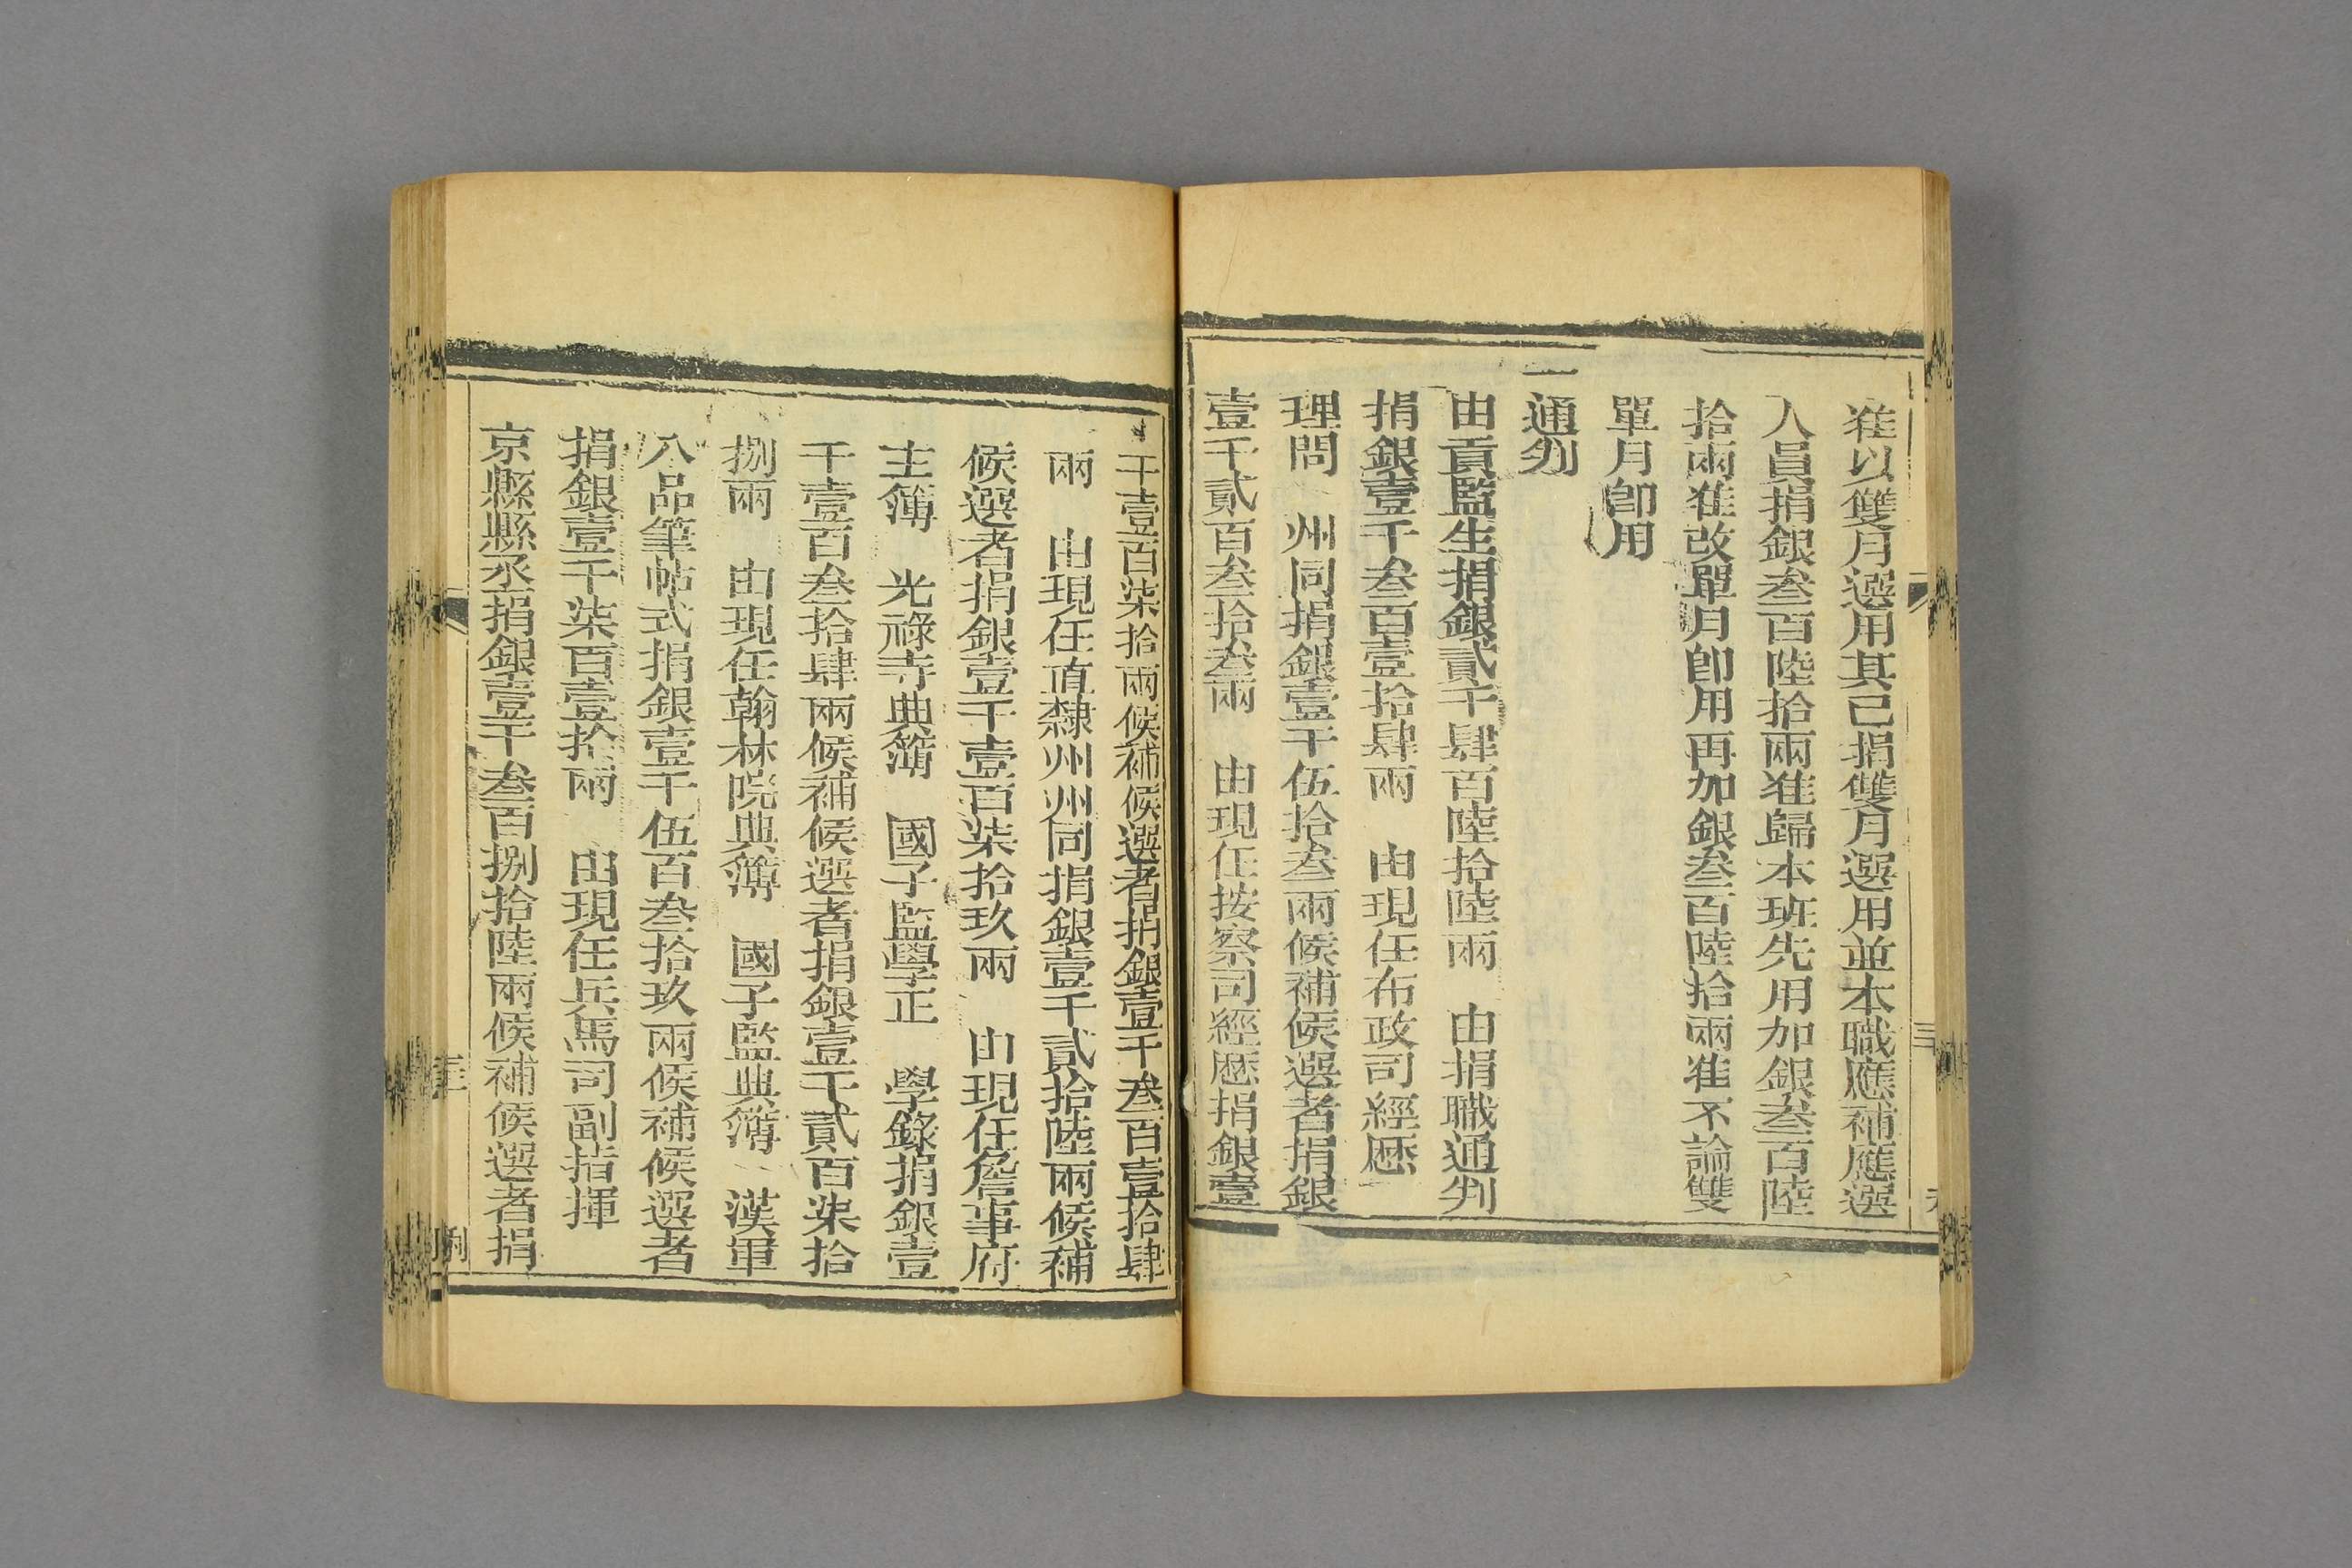 准以雙月選用其已捐雙月選用並本職應補應選
人員捐銀叁百陸拾兩准歸本班先用加銀叁百陸
拾兩准改單月卽用再加銀叁百陸拾兩准不論雙
單月卽用
一通判
由貢監生捐銀貳千肆百陸拾陸兩　由捐職通判
捐銀壹千叁百壹拾肆兩　由現任布政司經歷
理問　州同捐銀壹千伍拾叁兩候補候選者捐銀
壹千貳百叁拾叁兩　由現任按察司經歷捐銀壹
千壹百柒拾兩候補候選者捐銀壹千叁百壹拾肆
兩　由現任直隸州州同捐銀壹千貳拾陸兩候補
候選者捐銀壹千壹百柒拾玖兩　由現任詹事府
主簿　光祿寺典簿　國子監學正　學錄捐銀壹
千壹百叁拾肆兩候補候選者捐銀壹千貳百柒拾
捌兩　由現任翰林院典簿　國子監典簿　漢軍
八品筆帖式捐銀壹千伍百叁拾玖兩候補候選者
捐銀壹千柒百壹拾兩　由現任兵馬司副指揮
京縣縣丞捐銀壹千叁百捌拾陸兩候補候選者捐